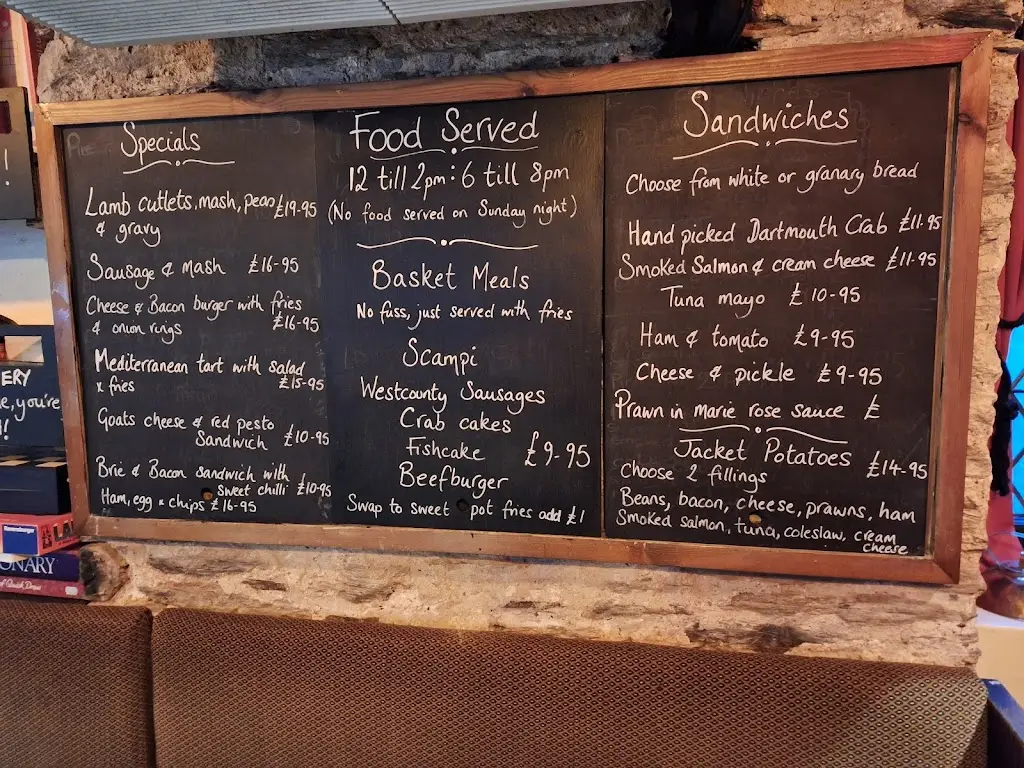 Specials
Lamb cutlets, mash, peas £19-95
& gravy
Sausage & mash £16-95
Cheese & Bacon burger with fries
& onion rings £16-95
Mediterranean tart with salad
x fries £15-95
Goats cheese & red pesto
Sandwich £10-95
Brie & Bacon sandwich with
sweet chilli £10-95
Ham, egg x chips £16-95
Food Served
12 till 2pm : 6 till 8pm
(No food served on Sunday night)
Basket Meals
No fuss, just served with fries
Scampi
Westcounty Sausages
Crab cakes
Fishcake £9-95
Beefburger
Swap to sweet pot fries add £1
Sandwiches
Choose from white or granary bread
Hand picked Dartmouth Crab £11-95
Smoked Salmon & cream cheese £11.95
Tuna mayo £10-95
Ham & tomato £9-95
Cheese & pickle £9-95
Prawn in marie rose sauce £
Jacket Potatoes £14-95
Choose 2 fillings
Beans, bacon, cheese, prawns, ham
Smoked salmon, tuna, coleslaw, cream
cheese
!
ERY
e, you're
!
Ravensburger
LA
ONARY